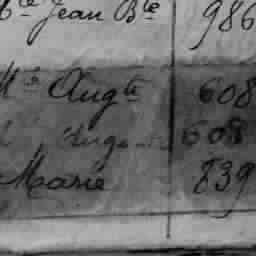 Jean Bte 986
Augte 608
608
Marie 839